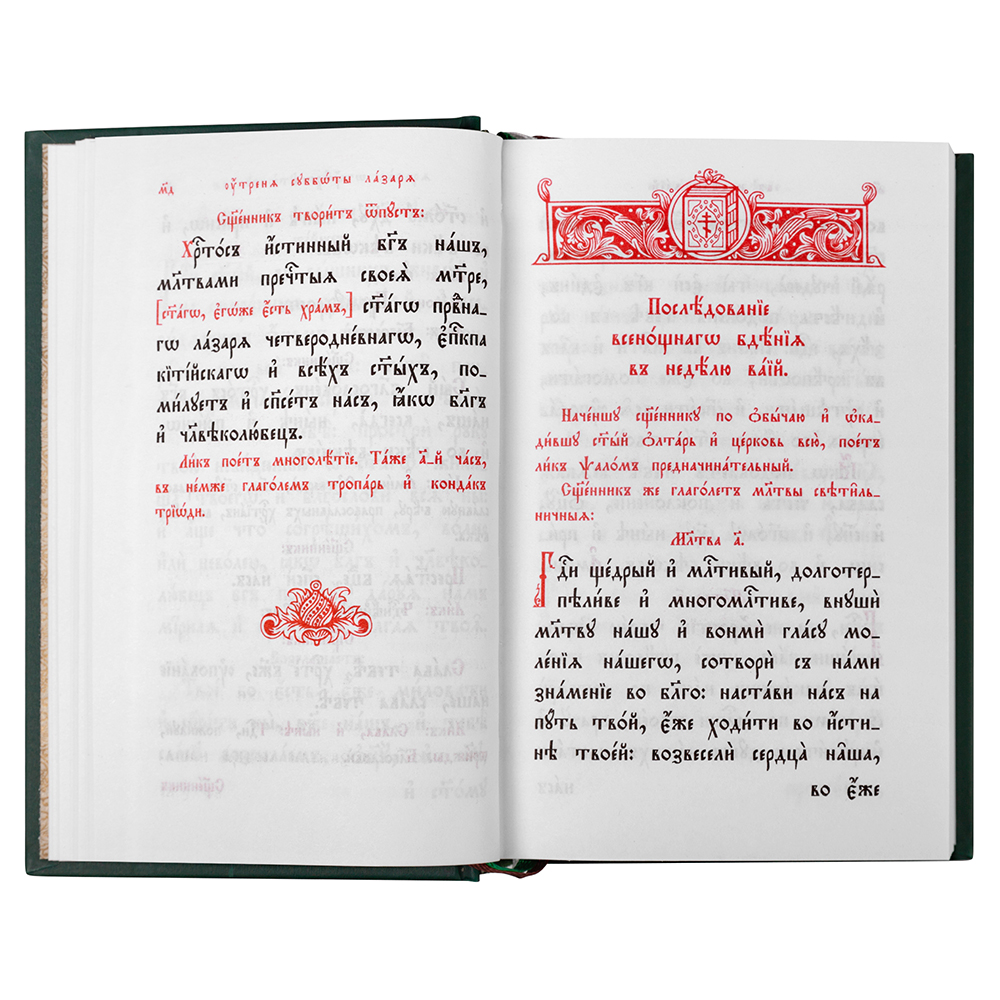 м҃д ᲂу҆́треня сꙋббѡ́ты ла́зарѧ
Сщ҃е́нникъ твори́тъ ѿпꙋ́стъ:
Хрⷭ҇то́съ и҆́стинный бг҃ъ на́шъ,
мл҃твами пречⷭ҇тыѧ своеѧ̀ мт҃ре,
[ст҃а́гѡ, є҆гѡ́же є҆́сть хра́мъ,] ст҃а́гѡ првⷣна-
гѡ ла́зарѧ четвероднє́внагѡ, є҆пⷭ҇кпа
кїті́йскагѡ и҆ всѣ́хъ ст҃ы́хъ, по-
ми́лꙋетъ и҆ сп҃се́тъ на́съ, ꙗ҆́кѡ бл҃гъ
и҆ чл҃вѣколю́бецъ.
Ли́къ пое́тъ многолѣ́тїе. Та́же а҃-й ча́съ,
въ не́мже глаго́лемъ тропа́рь и҆ конда́къ
трїѡ́ди.
Послѣ́дованїе
всено́щнагѡ бдѣ́нїѧ
въ недѣ́лю ва́їй.
Наче́ншꙋ сщ҃е́нникꙋ по ѻ҆бы́чаю и҆ ѡ҆ка-
ди́вшꙋ ст҃ы́й ѻ҆лта́рь и҆ це́рковь всю̀, пое́тъ
ли́къ ѱало́мъ предначина́тельный.
Сщ҃е́нникъ же глаго́летъ мл҃твы свѣти́ль-
ничныѧ:
Мл҃тва а҃.
Гдⷭ҇и ще́дрый и҆ млⷭ҇тивый, долготер-
пѣли́ве и҆ многомлⷭ҇тиве, внꙋшѝ
мл҃твꙋ на́шꙋ и҆ вонмѝ гла́сꙋ мо-
ле́нїѧ на́шегѡ, сотворѝ съ на́ми
зна́менїе во бл҃го: наста́ви на́съ на
пꙋ́ть тво́й, є҆́же ходи́ти во и҆́сти-
нѣ твое́й: возвеселѝ сердца̀ на̑ша,
во є҆́же